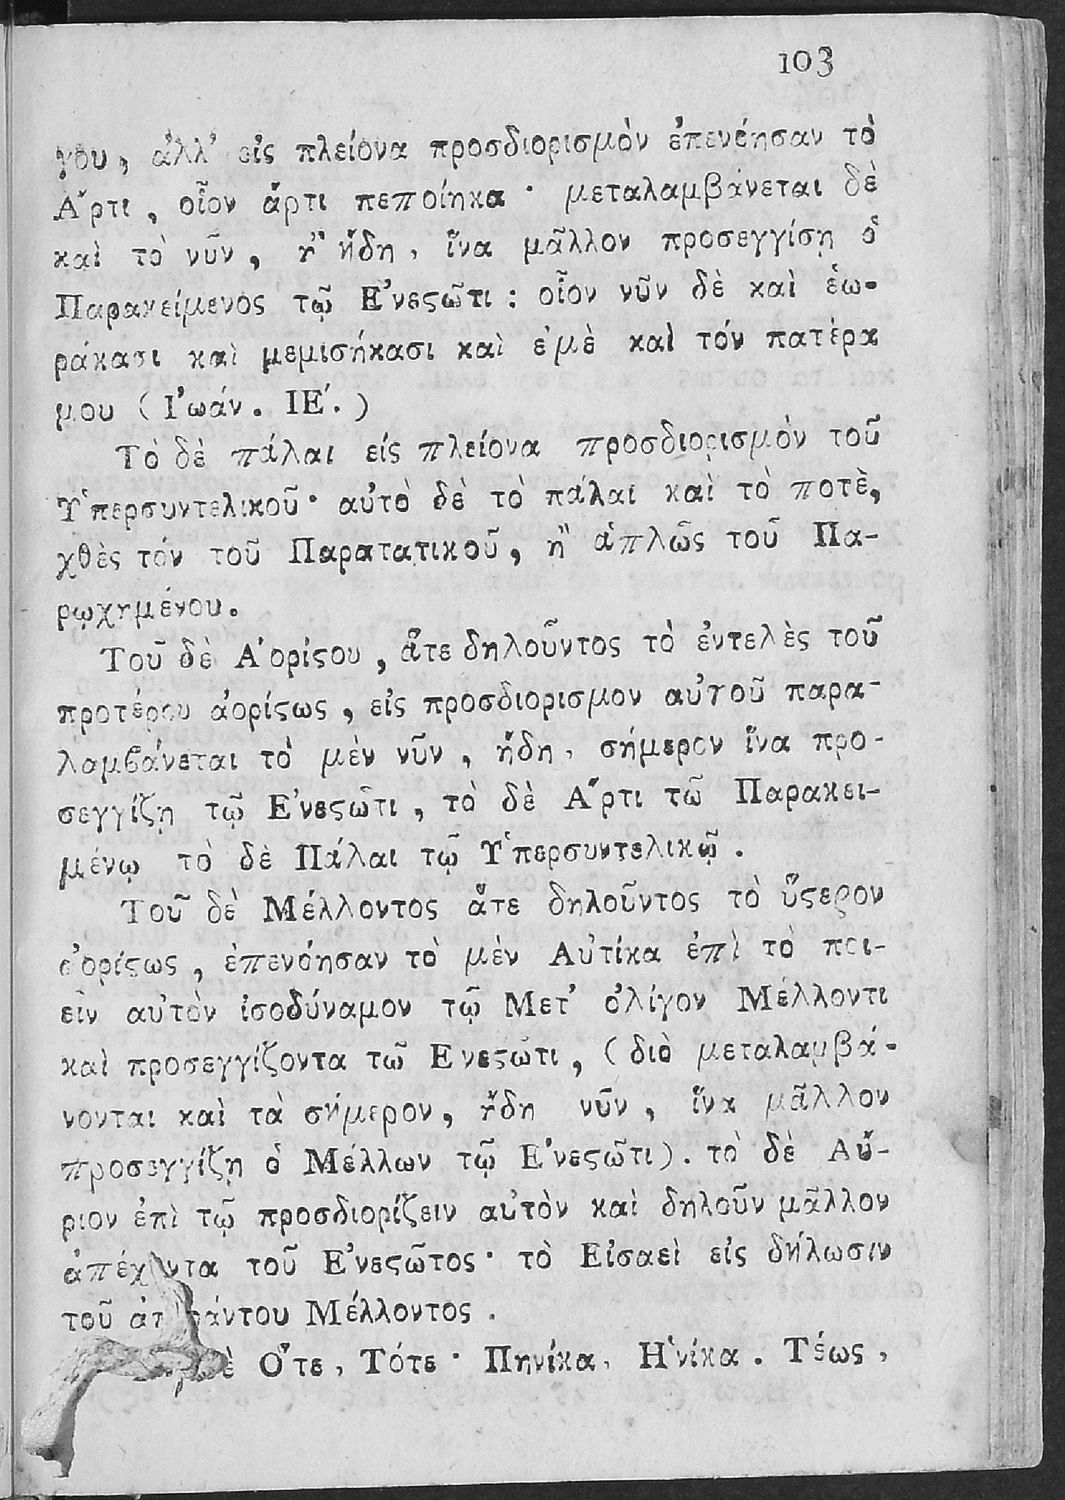 103
γου, ἀλλ' εἰς πλείονα προσδιορισμὸν ἐπενόησαν τὸ
Ἄρτι, οἷον ἄρτι πεποίηκα · μεταλαμβάνεται δὲ
καὶ τὸ νῦν, ἢ ἤδη, ἵνα μᾶλλον προσεγγίσῃ ὁ
Παρακείμενος τῷ Ἐνεϛῶτι : οἷον νῦν δὲ καὶ ἑω-
ράκασι καὶ μεμισήκασι καὶ ἐμὲ καὶ τόν πατέρα
μου (Ἰωάν. ΙΕ΄.)
Τὸ δὲ πάλαι εἰς πλείονα προσδιορισμὸν τοῦ
Ὑπερσυντελικοῦ· αὐτὸ δὲ τὸ πάλαι καὶ τὸ ποτὲ,
χθὲς τόν τοῦ Παρατατικοῦ, ἢ ἁπλῶς τοῦ Πα-
ρῳχημένου.
Τοῦ δὲ Ἀορίϛου, ἅτε δηλοῦντος τὸ ἐντελὲς τοῦ
προτέρου ἀορίϛως, εἰς προσδιορισμον αὐτοῦ παρα-
λαμβάνεται τὸ μὲν νῦν, ἤδη, σήμερον ἵνα προ-
σεγγίζῃ τῷ Ἐνεϛῶτι, τὸ δὲ Ἄρτι τῶ Παρακει-
μένῳ τὸ δὲ Πάλαι τῷ Ὑπερσυντελικῷ.
Τοῦ δὲ Μέλλοντος ἅτε δηλοῦντος τὸ ὕϛερον
ἀορίϛως, ἐπενόησαν τὸ μὲν Αὐτίκα ἐπὶ τὸ ποι-
εῖν αὐτὸν ἰσοδύναμον τῷ Μετ' ὀλίγον Μέλλοντι
καὶ προσεγγίζοντα τῶ Ενεϛῶτι, (διὸ μεταλαμβά-
νονται καὶ τὰ σήμερον, ἤδη νῦν, ἵνα μᾶλλον
προσεγγίζῃ ὁ Μέλλων τῷ Ἐνεϛῶτι). τὸ δὲ Αὔ-
ριον ἐπὶ τῷ προσδιορίζειν αὐτὸν καὶ δηλοῦν μᾶλλον
ἀπέχοντα τοῦ Ἐνεϛῶτος· τὸ Εἰσαεὶ εἰς δήλωσιν
τοῦ Μέλλοντος.
Ὅτε, Τότε· Πηνίκα, Ἡνίκα. Τέως,